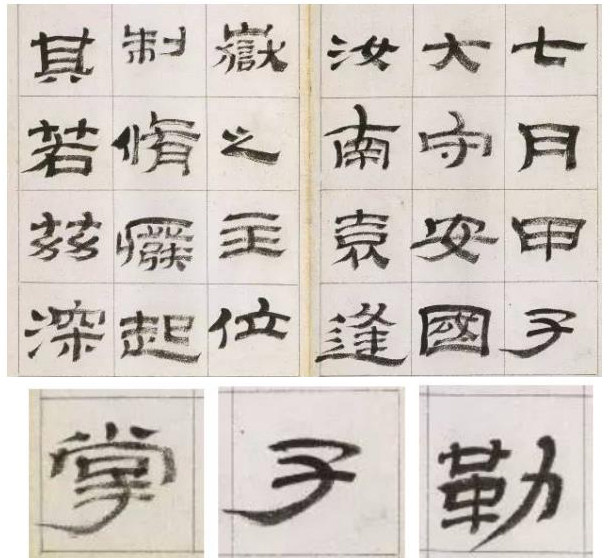 七月甲子
大守安國
汝南袁逢
嶽之主位
制脩癈起
其若茲深
掌子勒